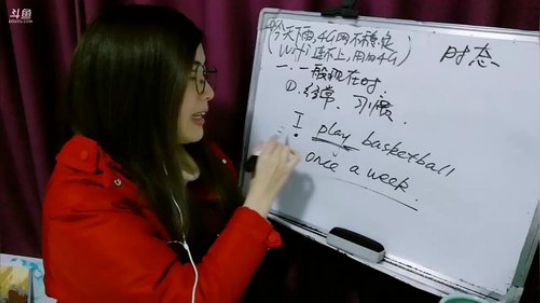 斗鱼
DOUYU.COM
(今天下雨,4G网不稳定
WiFi连不上,用的4G)
时态
一.一般现在时.
①.经常、习惯.
I play basketball
once a week.